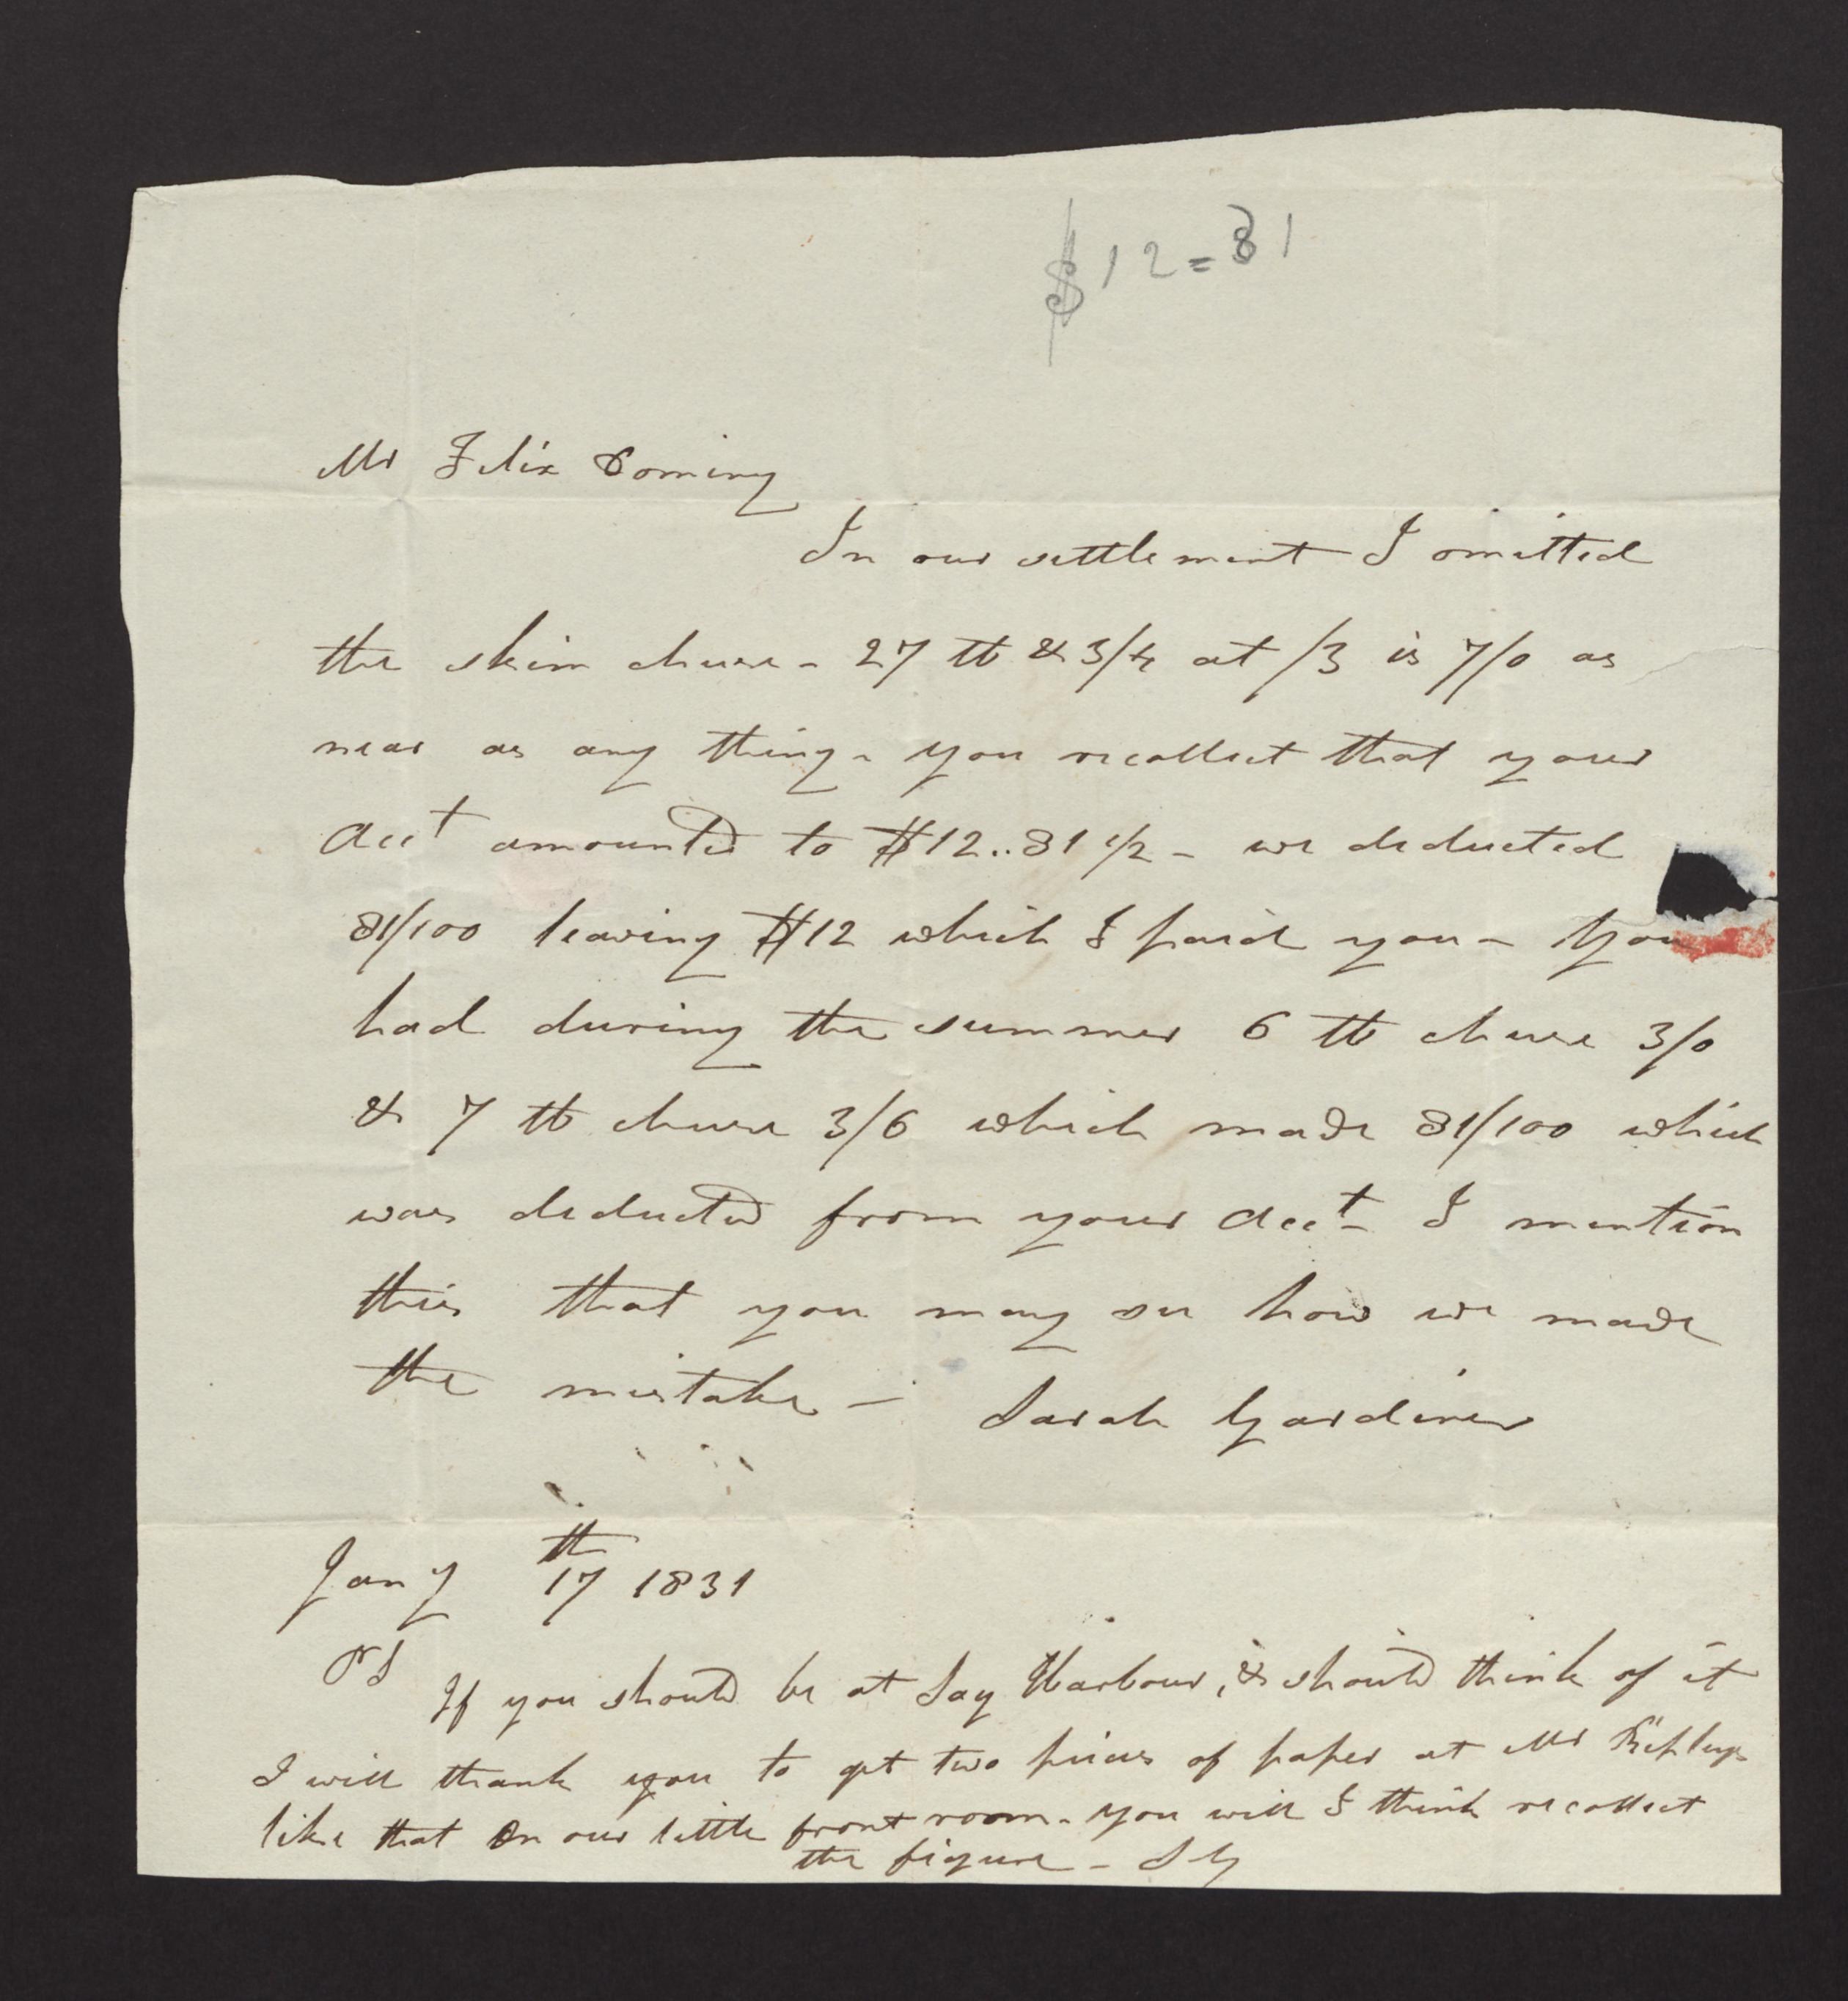 $12=81
Mr Felix Dominy
In our settlement I omitted
the skim cheese - 27 lb & 3/4 at /3 is 7/0 as
near as any thing - you recollect that your
Acct amounted to $12..81 1/2 - we deducted
81/100 leaving $12 which I paid you - You
had during the summer 6 lb cheese 3/0
& 7 lb cheese 3/6 which made 81/100 which
was deducted from your Acct - I mention
this that you may see how we made
the mistake - Sarah Gardiner
Jany 17th 1831
PS If you should be at Sag Harbour, & should think of it
I will thank you to get two pieces of paper at Mr
like that on our little front room - you will I think recollect
the figure - S G